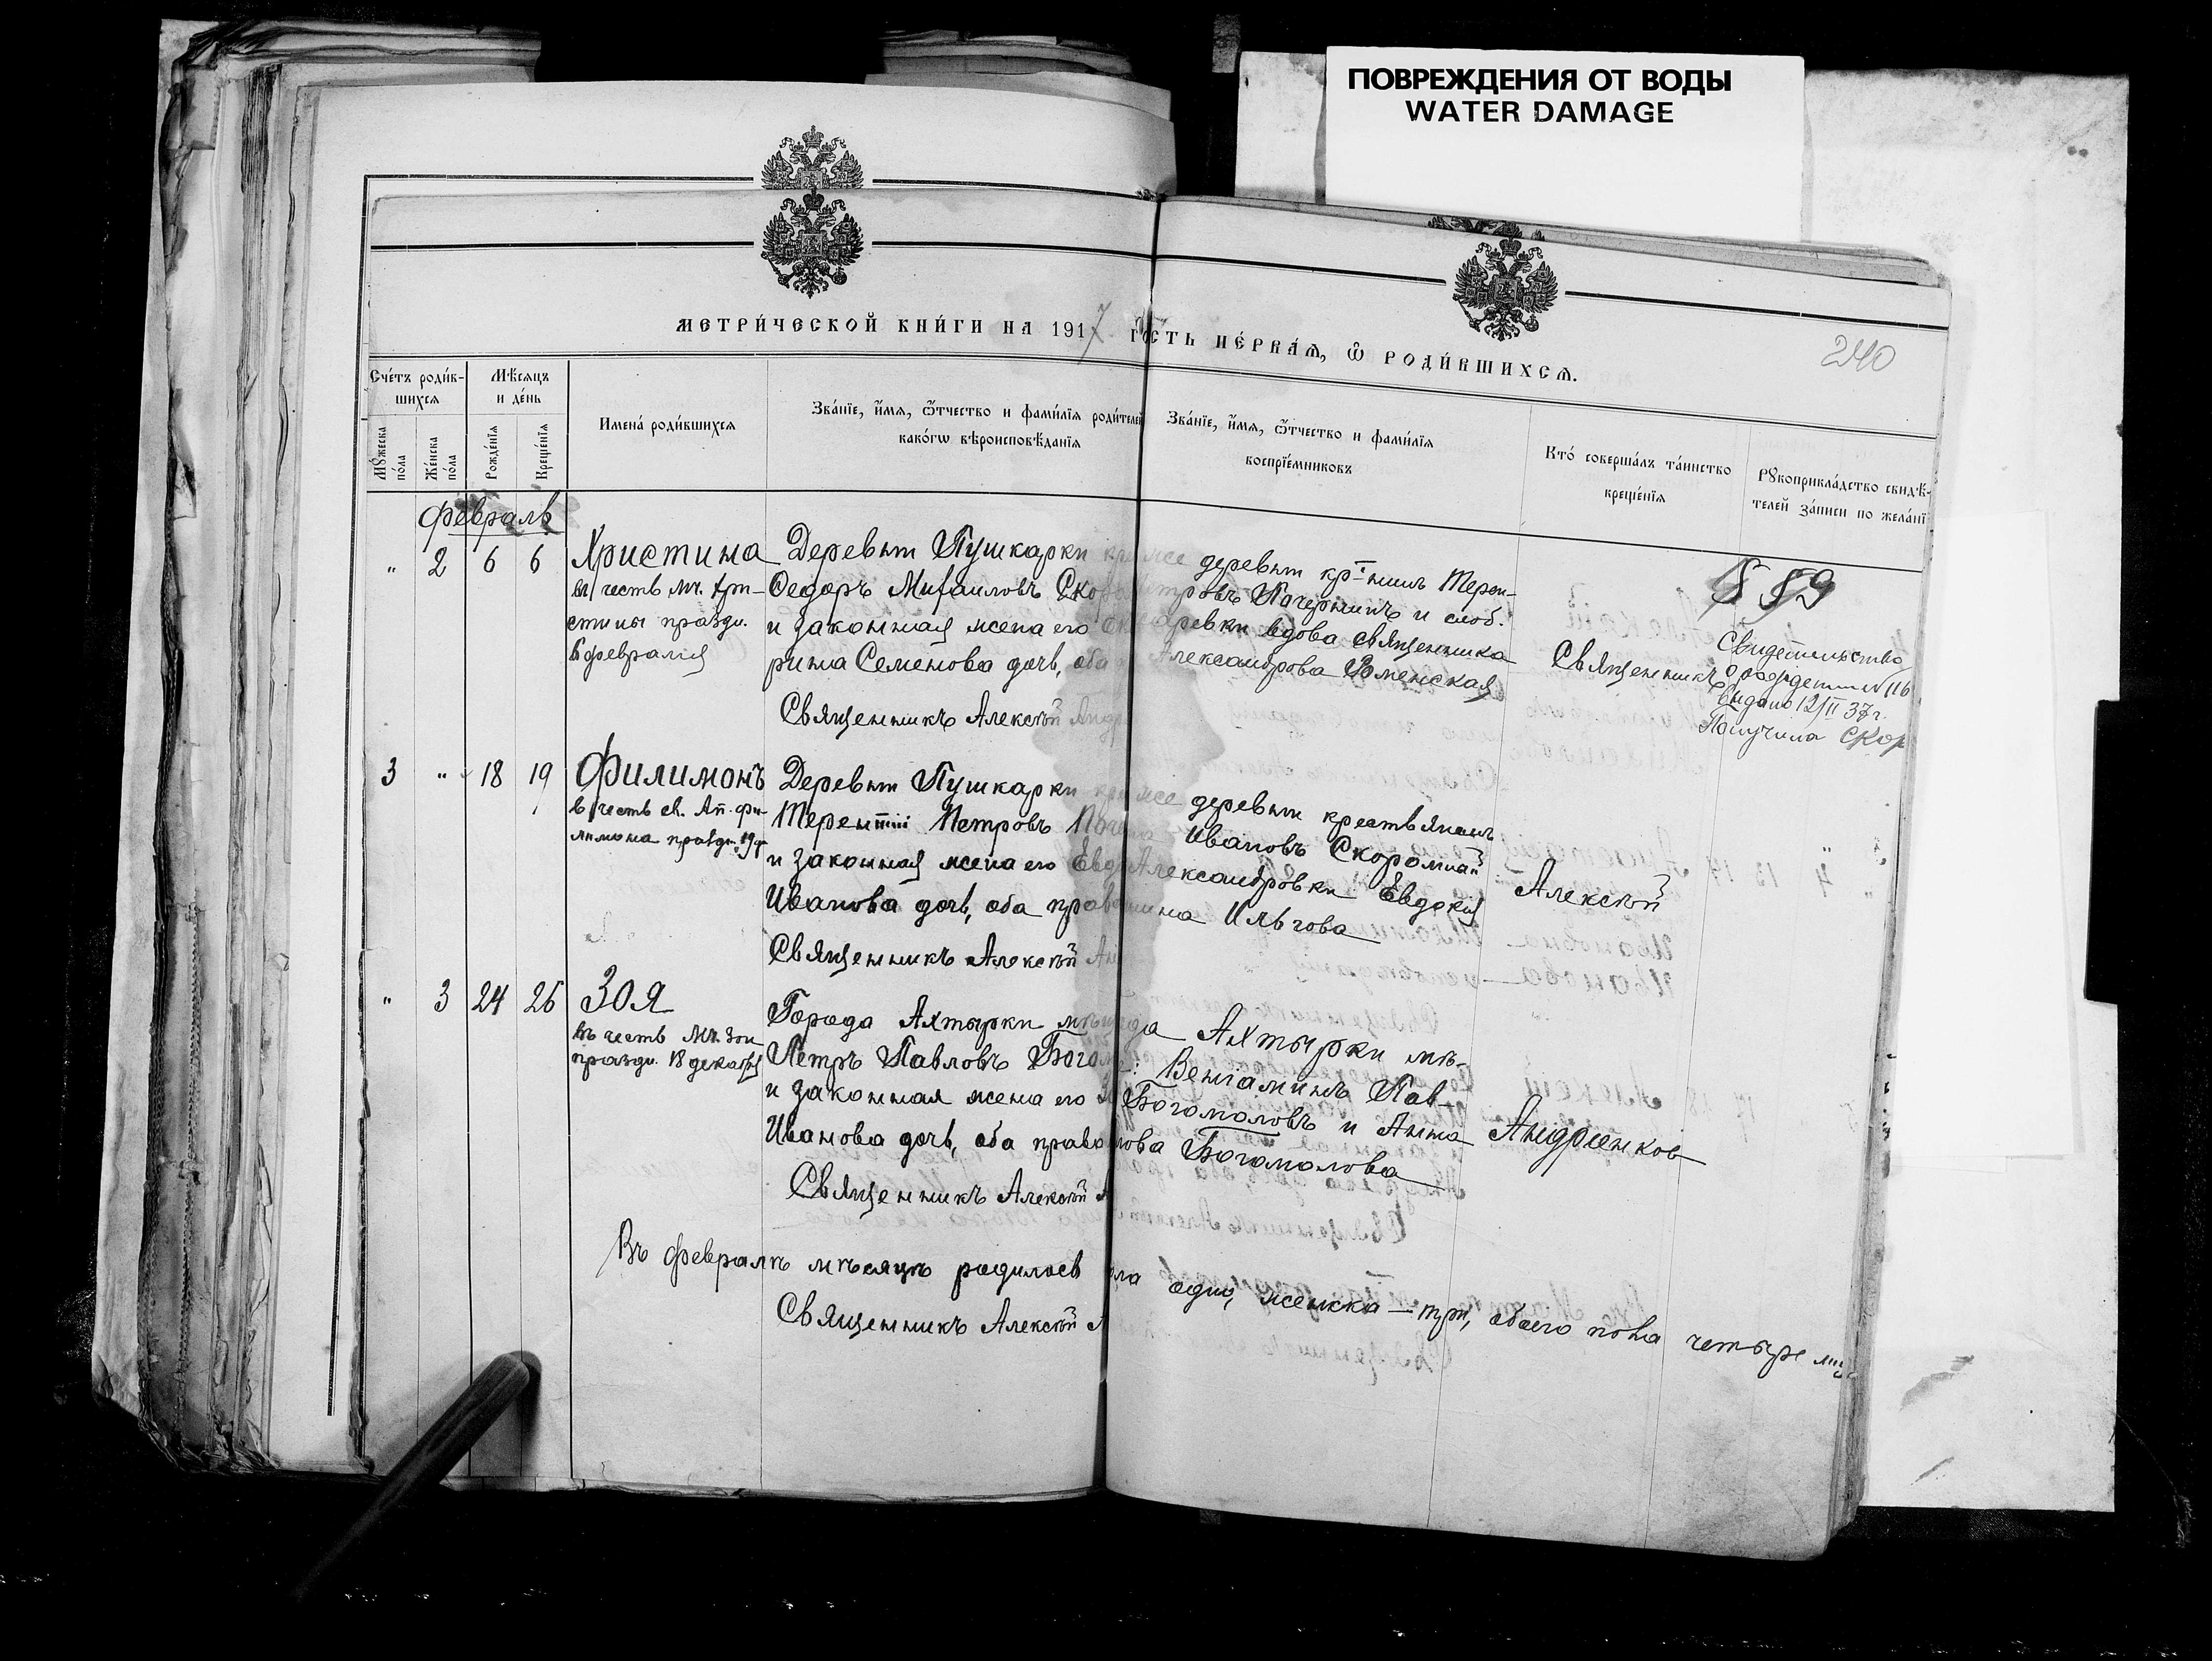 ПОВРЕЖДЕНИЯ ОТ ВОДЫ
WATER DAMAGE
МЕТРИ́ЧЕСКОЙ КНИ́ГИ НА 1917
ЧА́СТЬ ПЕ́РВАЯ, Ѿ РОДИ́ВШИХСЯ.
240
Счéтъ роди́в-
шихся
Мꙋ́жеска
по́ла
Же́нска
по́ла
Мѣ́сяцъ
и де́нь
Рожде́нїя
Креще́нїя
Имена̀ роди́вшихся
Зва́нїе, и́мя, ѻ́тчество и фами́лїя роди́телей
како́гѡ вѣроисповѣ́данїя
Зва́нїе, и́мя, ѻ́тчество и фами́лїя
воспрїе́мниковъ
Кто́ соверша́лъ та́инство
креще́нїя
Рꙋкоприкла́дство свидѣ́-
телей за́писи по жела́нї
Февраль
" 2 6 6
Христина
въ честь мч. Хри-
стины праздн.
6 февраля
Деревни Пушкарки
Ѳедоръ Михаиловъ Скоро
и законная жена его
рина Семенова дочь, оба
Священникъ Алексѣй Андр
деревни кр-нинъ Терен-
тровъ Почернинъ и слоб.
ревки вдова священника
Александрова Роменская
Священникъ
§ 89
Свидетельство
о рождении N 116
Выдано 12/II 37 г.
Получила Скор
3 " 18 19
Филимонъ
въ честь св. Ап. Фи-
лимона праздн. 19 ф.
Деревни Пушкарки
Терентій Петровъ Поче
и законная жена его Евд
Иванова дочь, оба прав
Священникъ Алексѣй Ан
деревни крестьянинъ
Ивановъ Скоромный
Александровки Евдокія
Ильгова
Алексѣй
" 3 24 26
Зоя
въ честь Мч. Зои
праздн. 18 декабря
Города Ахтырки мѣщ
Петръ Павловъ Богом
и законная жена его
Иванова дочь, оба право
Священникъ Алексѣй А
да Ахтырки мѣ-
Веніаминъ Пав-
Богомоловъ и Анна
лова Богомолова
Андріенков
Въ февралѣ мѣсяцѣ родилось
ола одинъ, женска — три, обоего пола четыре
Священникъ Алексѣй А